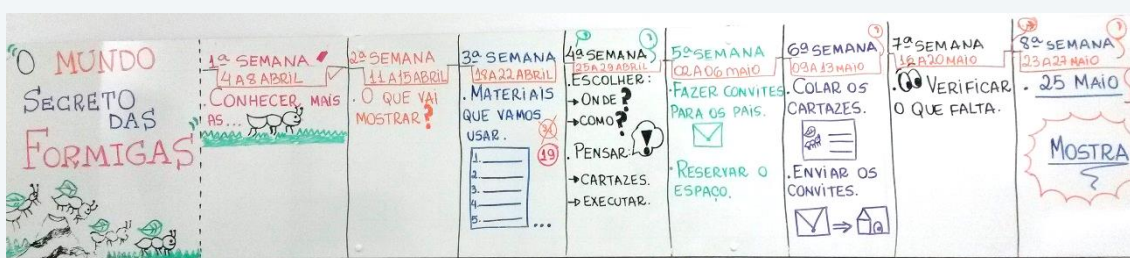 "O MUNDO
SEGRETO
DAS
FORMIGAS"
1ª SEMANA
4 A 8 ABRIL
. CONHECER MAIS
AS...
2ª SEMANA
11 A 15 ABRIL
. O QUE VAI
MOSTRAR?
3ª SEMANA
18 A 22 ABRIL
. MATERIAIS
QUE VAMOS
USAR.
19
1.
2.
3.
4.
5.
...
4ª SEMANA
25 A 29 ABRIL
. ESCOLHER:
→ ONDE?
→ COMO?
. PENSAR:
→ CARTAZES.
→ EXECUTAR.
5ª SEMANA
02 A 06 MAIO
. FAZER CONVITES
PARA OS PAIS.
. RESERVAR O
ESPAÇO.
6ª SEMANA
09 A 13 MAIO
. COLAR OS
CARTAZES.
. ENVIAR OS
CONVITES.
7ª SEMANA
16 A 20 MAIO
. VERIFICAR
O QUE FALTA.
8ª SEMANA
23 A 27 MAIO
. 25 MAIO
MOSTRA